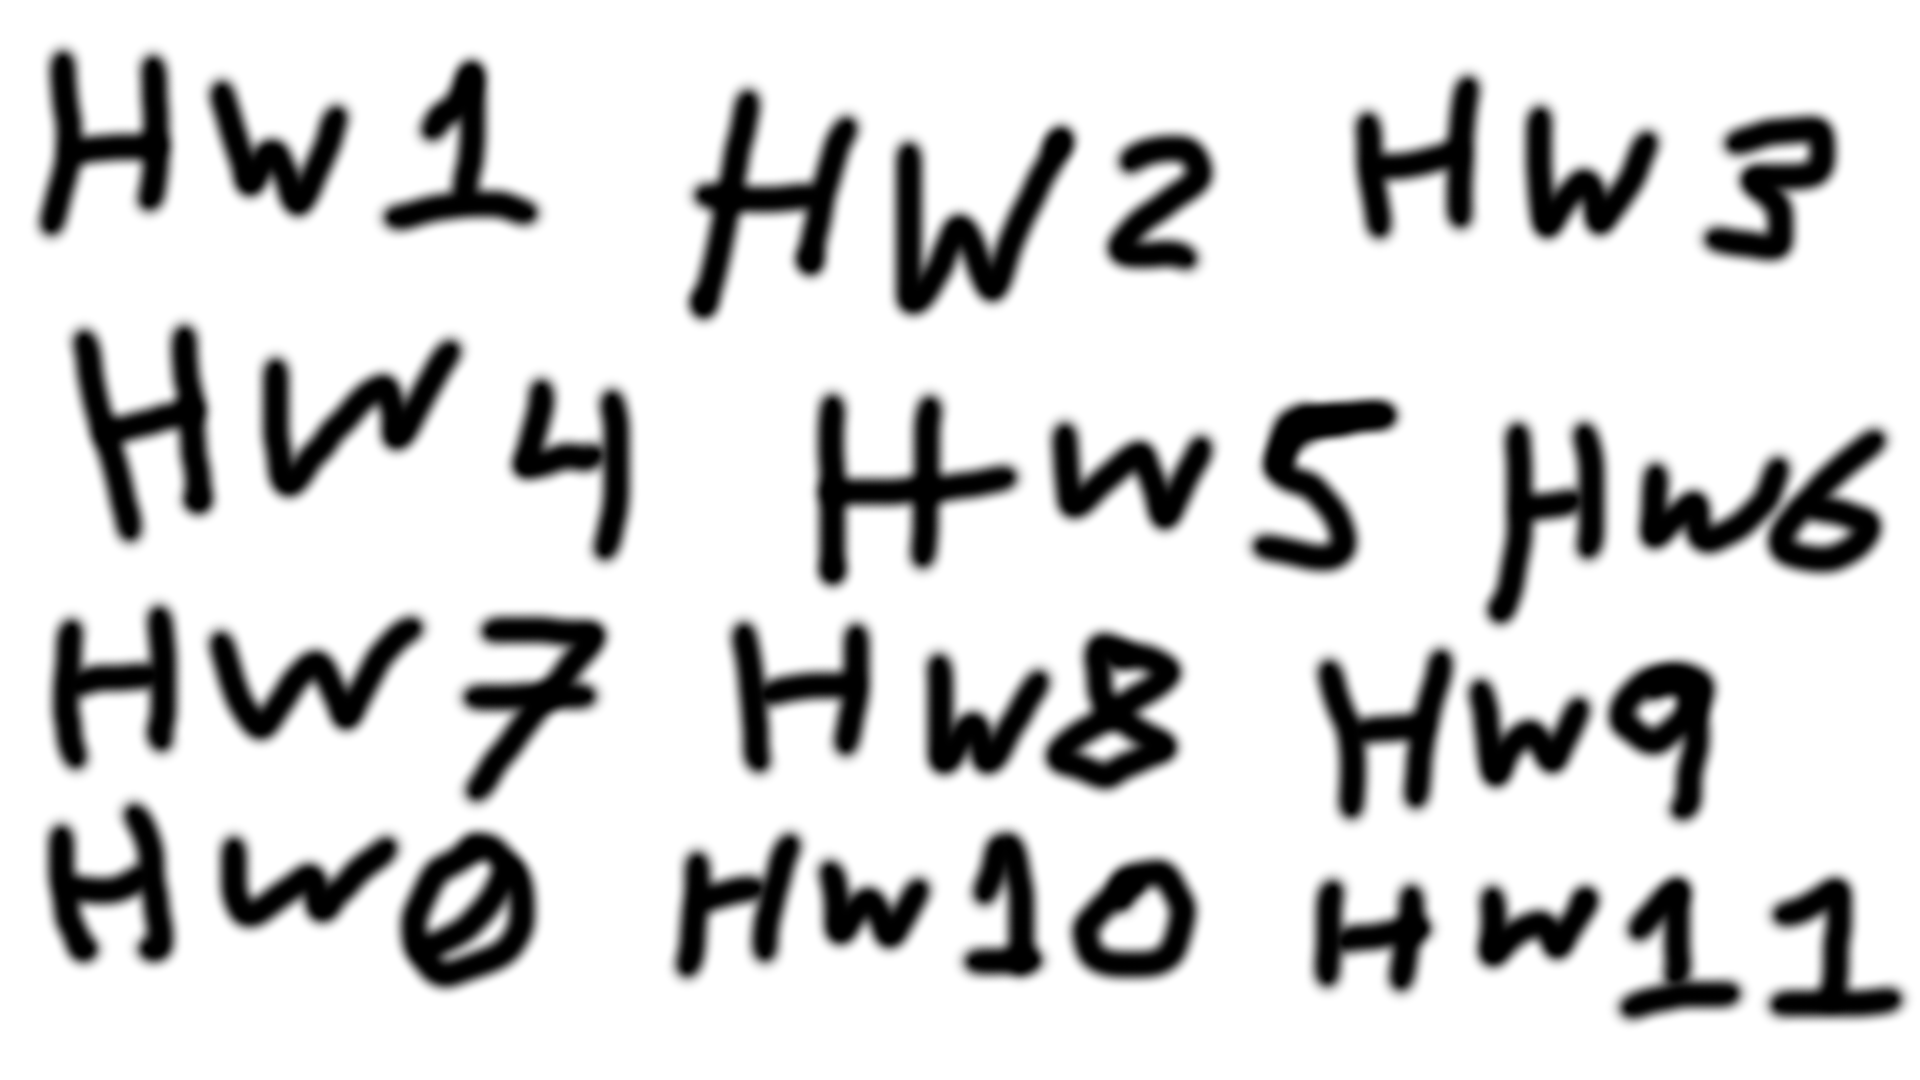 HW1 HW2 HW3
HW4 HW5 HW6
HW7 HW8 HW9
HW0 HW10 HW11